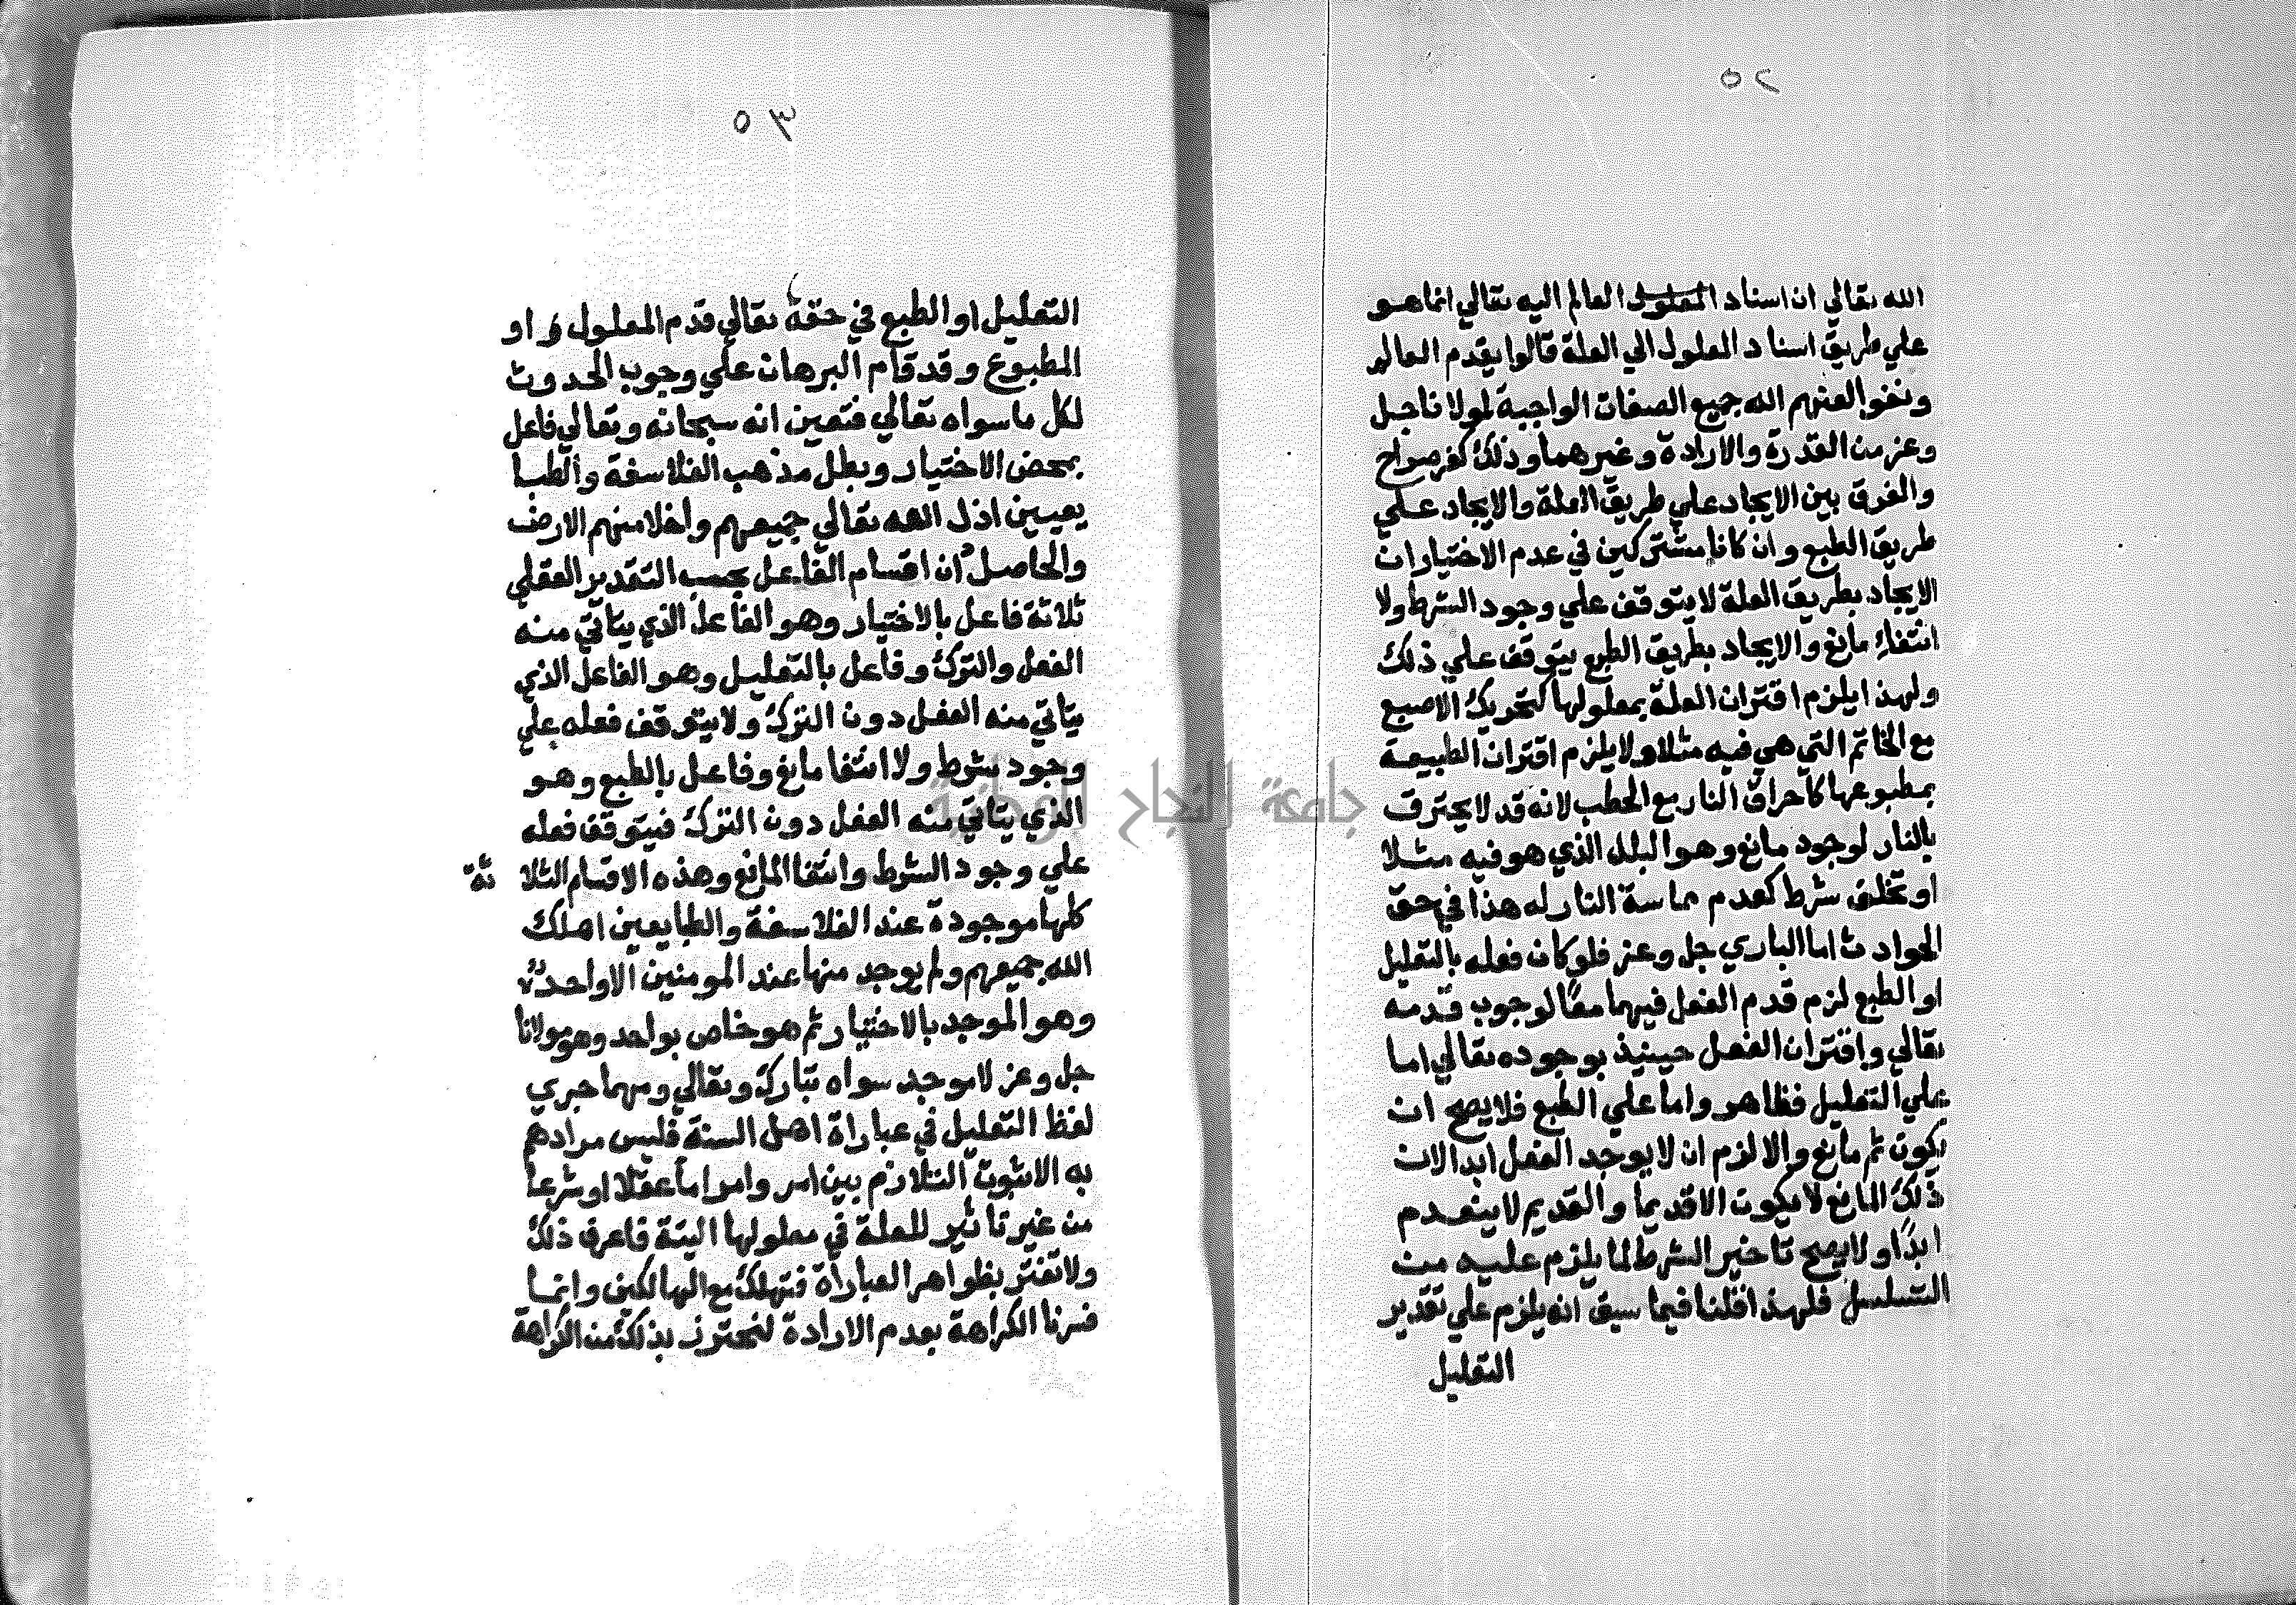 ٥٢
الله تعالي ان اسناد العالم اليه تعالي انما هو
علي طريق اسناد المعلول الي العلة قالوا بقدم العالم
ونفوا لعنهم الله جميع الصفات الواجبة لمولانا جل
وعز من القدرة والارادة وغيرهما وذلك كفر صراح
والفرق بين الايجاد علي طريق العلة والايجاد علي
طريق الطبع وان كانا مشتركين في عدم الاختيار ان
الايجاد بطريق العلة لا يتوقف علي وجود الشرط ولا
انتفاء مانع والايجاد بطريق الطبع يتوقف علي ذلك
ولهذا يلزم اقتران العلة بمعلولها كتحريك الاصبع
مع الخاتم التي هي فيه مثلا ولا يلزم اقتران الطبيعة
بمطبوعها كاحراق النار مع الحطب لانه قد لا يحترق
بالنار لوجود مانع وهو البلل الذي هو فيه مثلا
او تخلف شرط كعدم مماسة النار له هذا في حق
الحوادث اما الباري جل وعز فلو كان فعله بالتعليل
او الطبع لزم قدم الفعل فيهما معا لوجوب قدمه
تعالي واقتران الفعل حينيذ بوجوده تعالي اما
علي التعليل فظاهر واما علي الطبع فلا يصح ان
يكون ثم مانع والا لزم ان لا يوجد الفعل ابدا لان
ذلك المانع لا يكون الا قديما والقديم لا ينعدم
ابدا ولا يصح تاخير الشرط لما يلزم عليه من
التسلسل فلهذا قلنا فيما سبق انه يلزم علي تقدير
التعليل
٥٣
التعليل او الطبع في حقه تعالي قدم المعلول او
المطبوع وقد قام البرهان علي وجوب الحدوث
لكل ما سواه تعالي فتعين انه سبحانه وتعالي فاعل
بمحض الاختيار وبطل مذهب الفلاسفة والطبا
يعيين اذل الله تعالي جميعهم واخلا منهم الارض
والحاصل ان اقسام الفاعل بحسب التقدير العقلي
ثلاثة فاعل بالاختيار وهو الفاعل الذي يتاتي منه
الفعل والترك وفاعل بالتعليل وهو الفاعل الذي
يتاتي منه الفعل دون الترك ولا يتوقف فعله علي
وجود شرط ولا انتفا مانع وفاعل بالطبع وهو
الذي يتاتي منه الفعل دون الترك فيتوقف فعله
علي وجود الشرط وانتفا المانع وهذه الاقسام الثلا ثة
كلها موجودة عند الفلاسفة والطبايعين اهلك
الله جميعهم ولم يوجد منها عند المومنين الا واحد
وهو الموجد بالاختيار ثم هو خاص بواحد وهو مولانا
جل وعز لا موجد سواه تبارك وتعالي ومهما جري
لفظ التعليل في عباراة اهل السنة فليس مرادهم
به الا ثبوت التلازم بين امر وامر اما عقلا او شرعا
من غير تاثير للعلة في معلولها البتة فاعرف ذلك
ولا تغتر بظواهر العباراة فتهلك مع الهالكين وانما
فسرنا الكراهة بعدم الارادة لنحترز بذلك من الكراهة
جامعة النجاح الوطنية